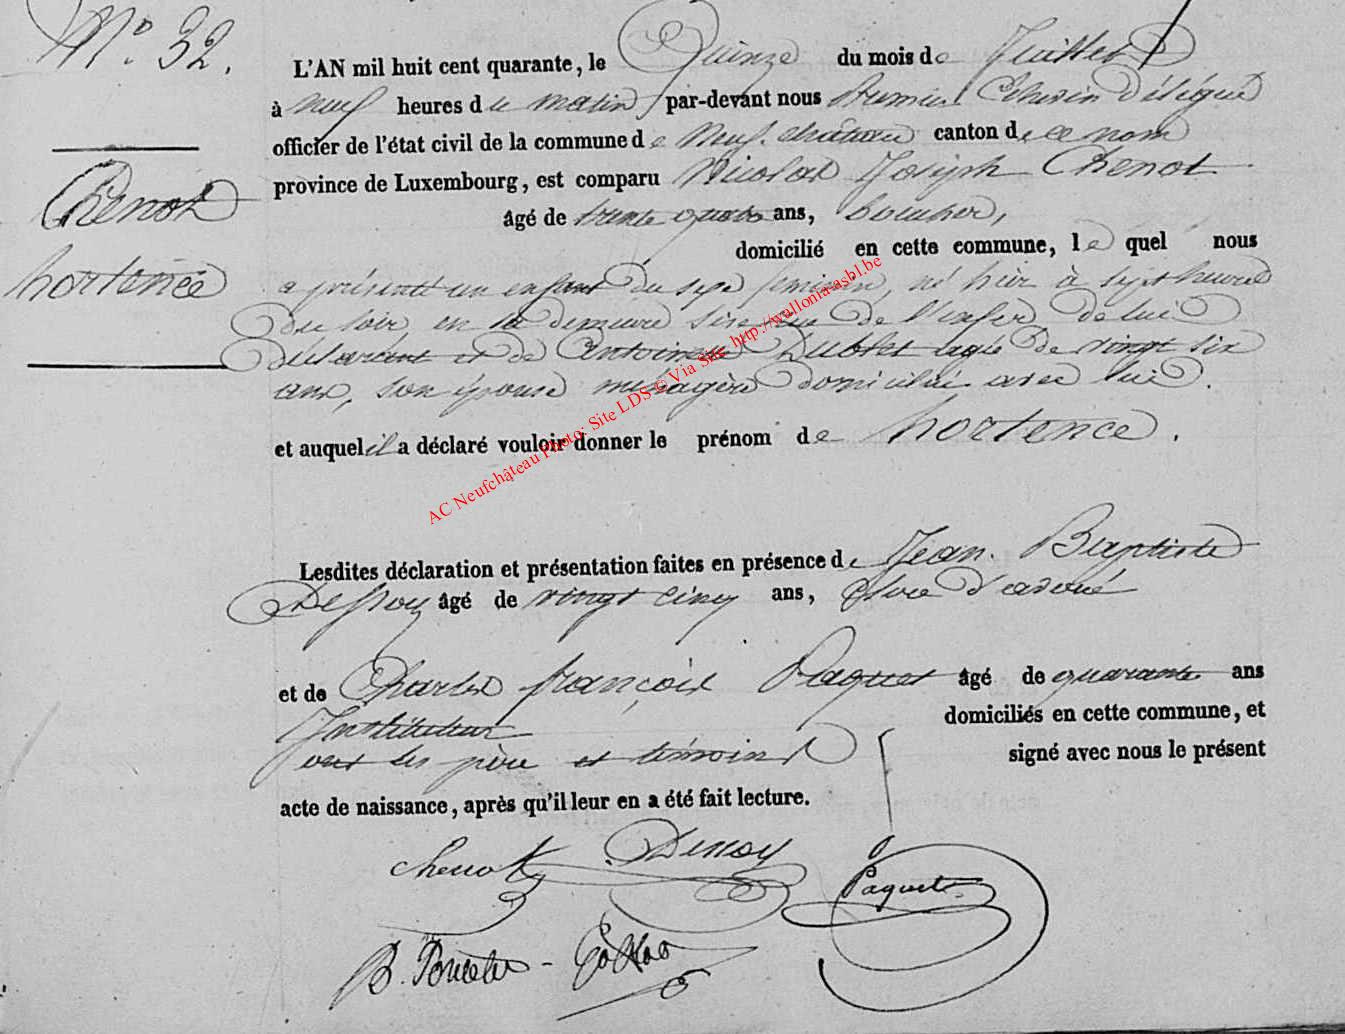 N° 32.
Chenot
hortence
L'AN mil huit cent quarante, le Quinze du mois de Juillet
à neuf heures du matin par-devant nous Premier Echevin délégué
officier de l'état civil de la commune de Neufchateau canton de ce nom
province de Luxembourg, est comparu Nicolas Joseph Chenot
âgé de trente quatre ans,
domicilié en cette commune, le quel nous
a présenté un enfant du sexe feminin, né hier à sept heures
du soir, en sa demeure sise rue de l'enfer de lui
déclarant et de Antoinette Dublet agée de vingt six
ans, son épouse menagère domiciliée avec lui.
et auquel il a déclaré vouloir donner le prénom de hortence.
AC Neufchâteau Photo: Site LDS © Via Site http://wallonia-asbl.be
Lesdites déclaration et présentation faites en présence de Jean-Baptiste
âgé de vingt cinq ans, Clerc d'avoué
et de Charles françois Paquet âgé de quarante ans
Instituteur domiciliés en cette commune, et
ont les père et témoins signé avec nous le présent
acte de naissance, après qu'il leur en a été fait lecture.
chenot
Paquet